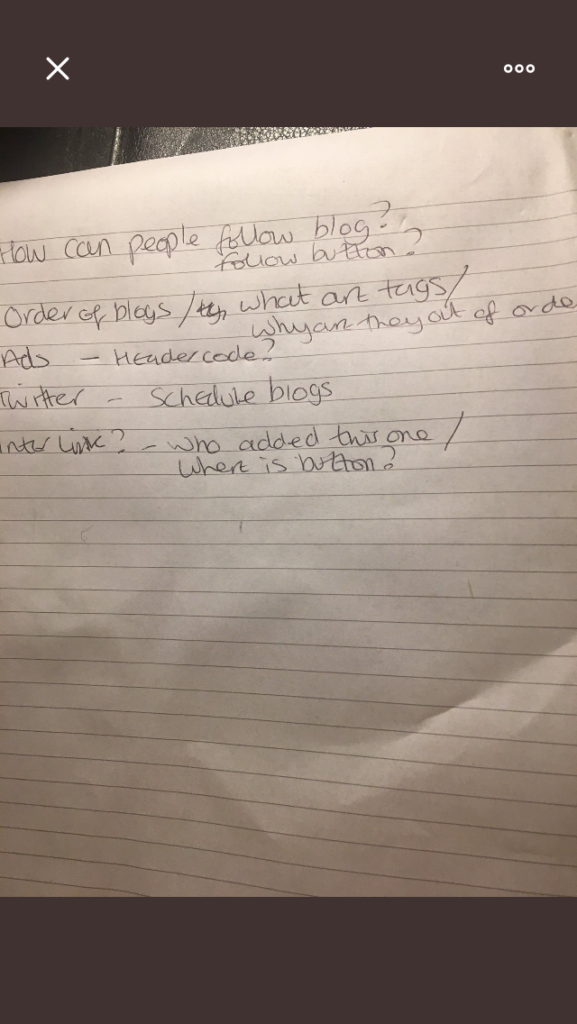 How can people follow blog?
follow button?
Order of blogs / what are tags/
why are they out of orde
Ads - Header code?
Twitter - Schedule blogs
inter link? - who added this one /
where is button?